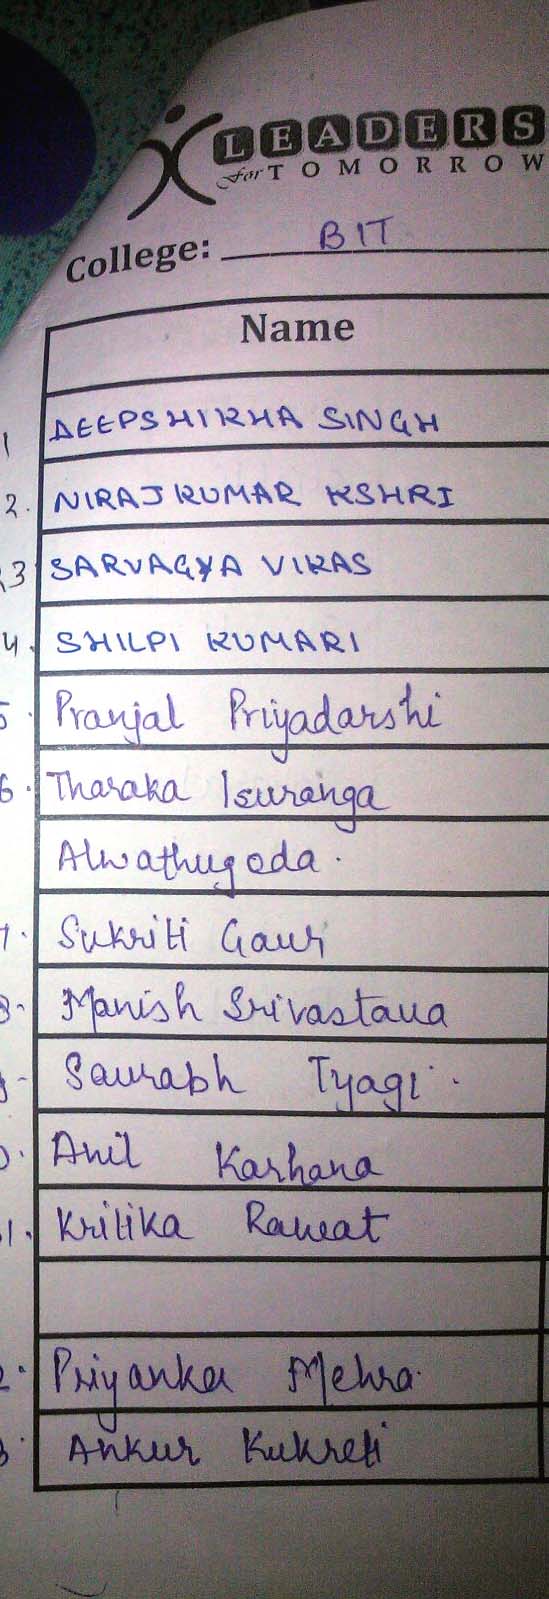 LEADERS
for TOMORROW
College: BIT
Name
1 DEEPSHIKHA SINGH
2. NIRAJ KUMAR KSHRI
3 SARVAGYA VIKAS
4. SHILPI KUMARI
5. Pranjal Priyadarshi
6. Tharaka Isuranga
Alwathugoda.
7. Sukriti Gaur
8- Manish Srivastava
9- Saurabh Tyagi.
0. Anil Karhana
1. Kritika Rawat
2. Priyanka Mehra.
3. Ankur Kukreti